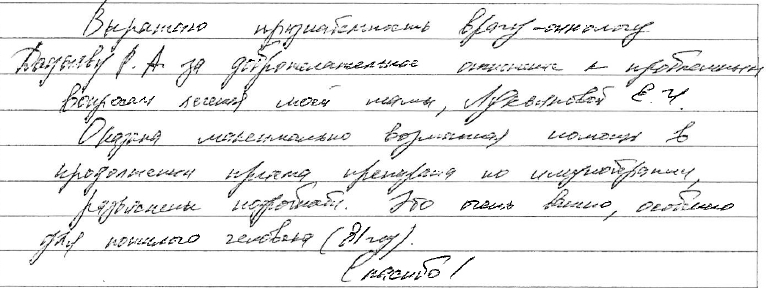 Выражаю признательность врачу-онкологу
Р. А. за доброжелательное отношение к проблемным
вопросам лечения моей мамы, Лукьяновой Е. Ч.
Оказана максимально возможная помощь в
продолжении приема препарата по иммунотерапии,
разъяснены подробности. Это очень важно, особенно
для пожилого человека (81 год).
Спасибо!